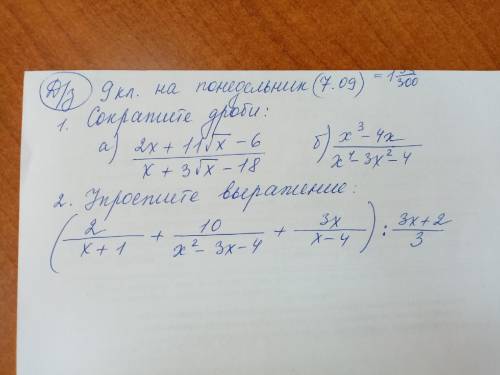 Д/з 9 кл. на понедельник (7.09)
1. Сократите дроби:
а) (2x + 11√x − 6)/(x + 3√x − 18) б) (x³ − 4x)/(x⁴ − 3x² − 4)
2. Упростите выражение:
(2/(x + 1) + 10/(x² − 3x − 4) + 3x/(x − 4)) : (3x + 2)/3